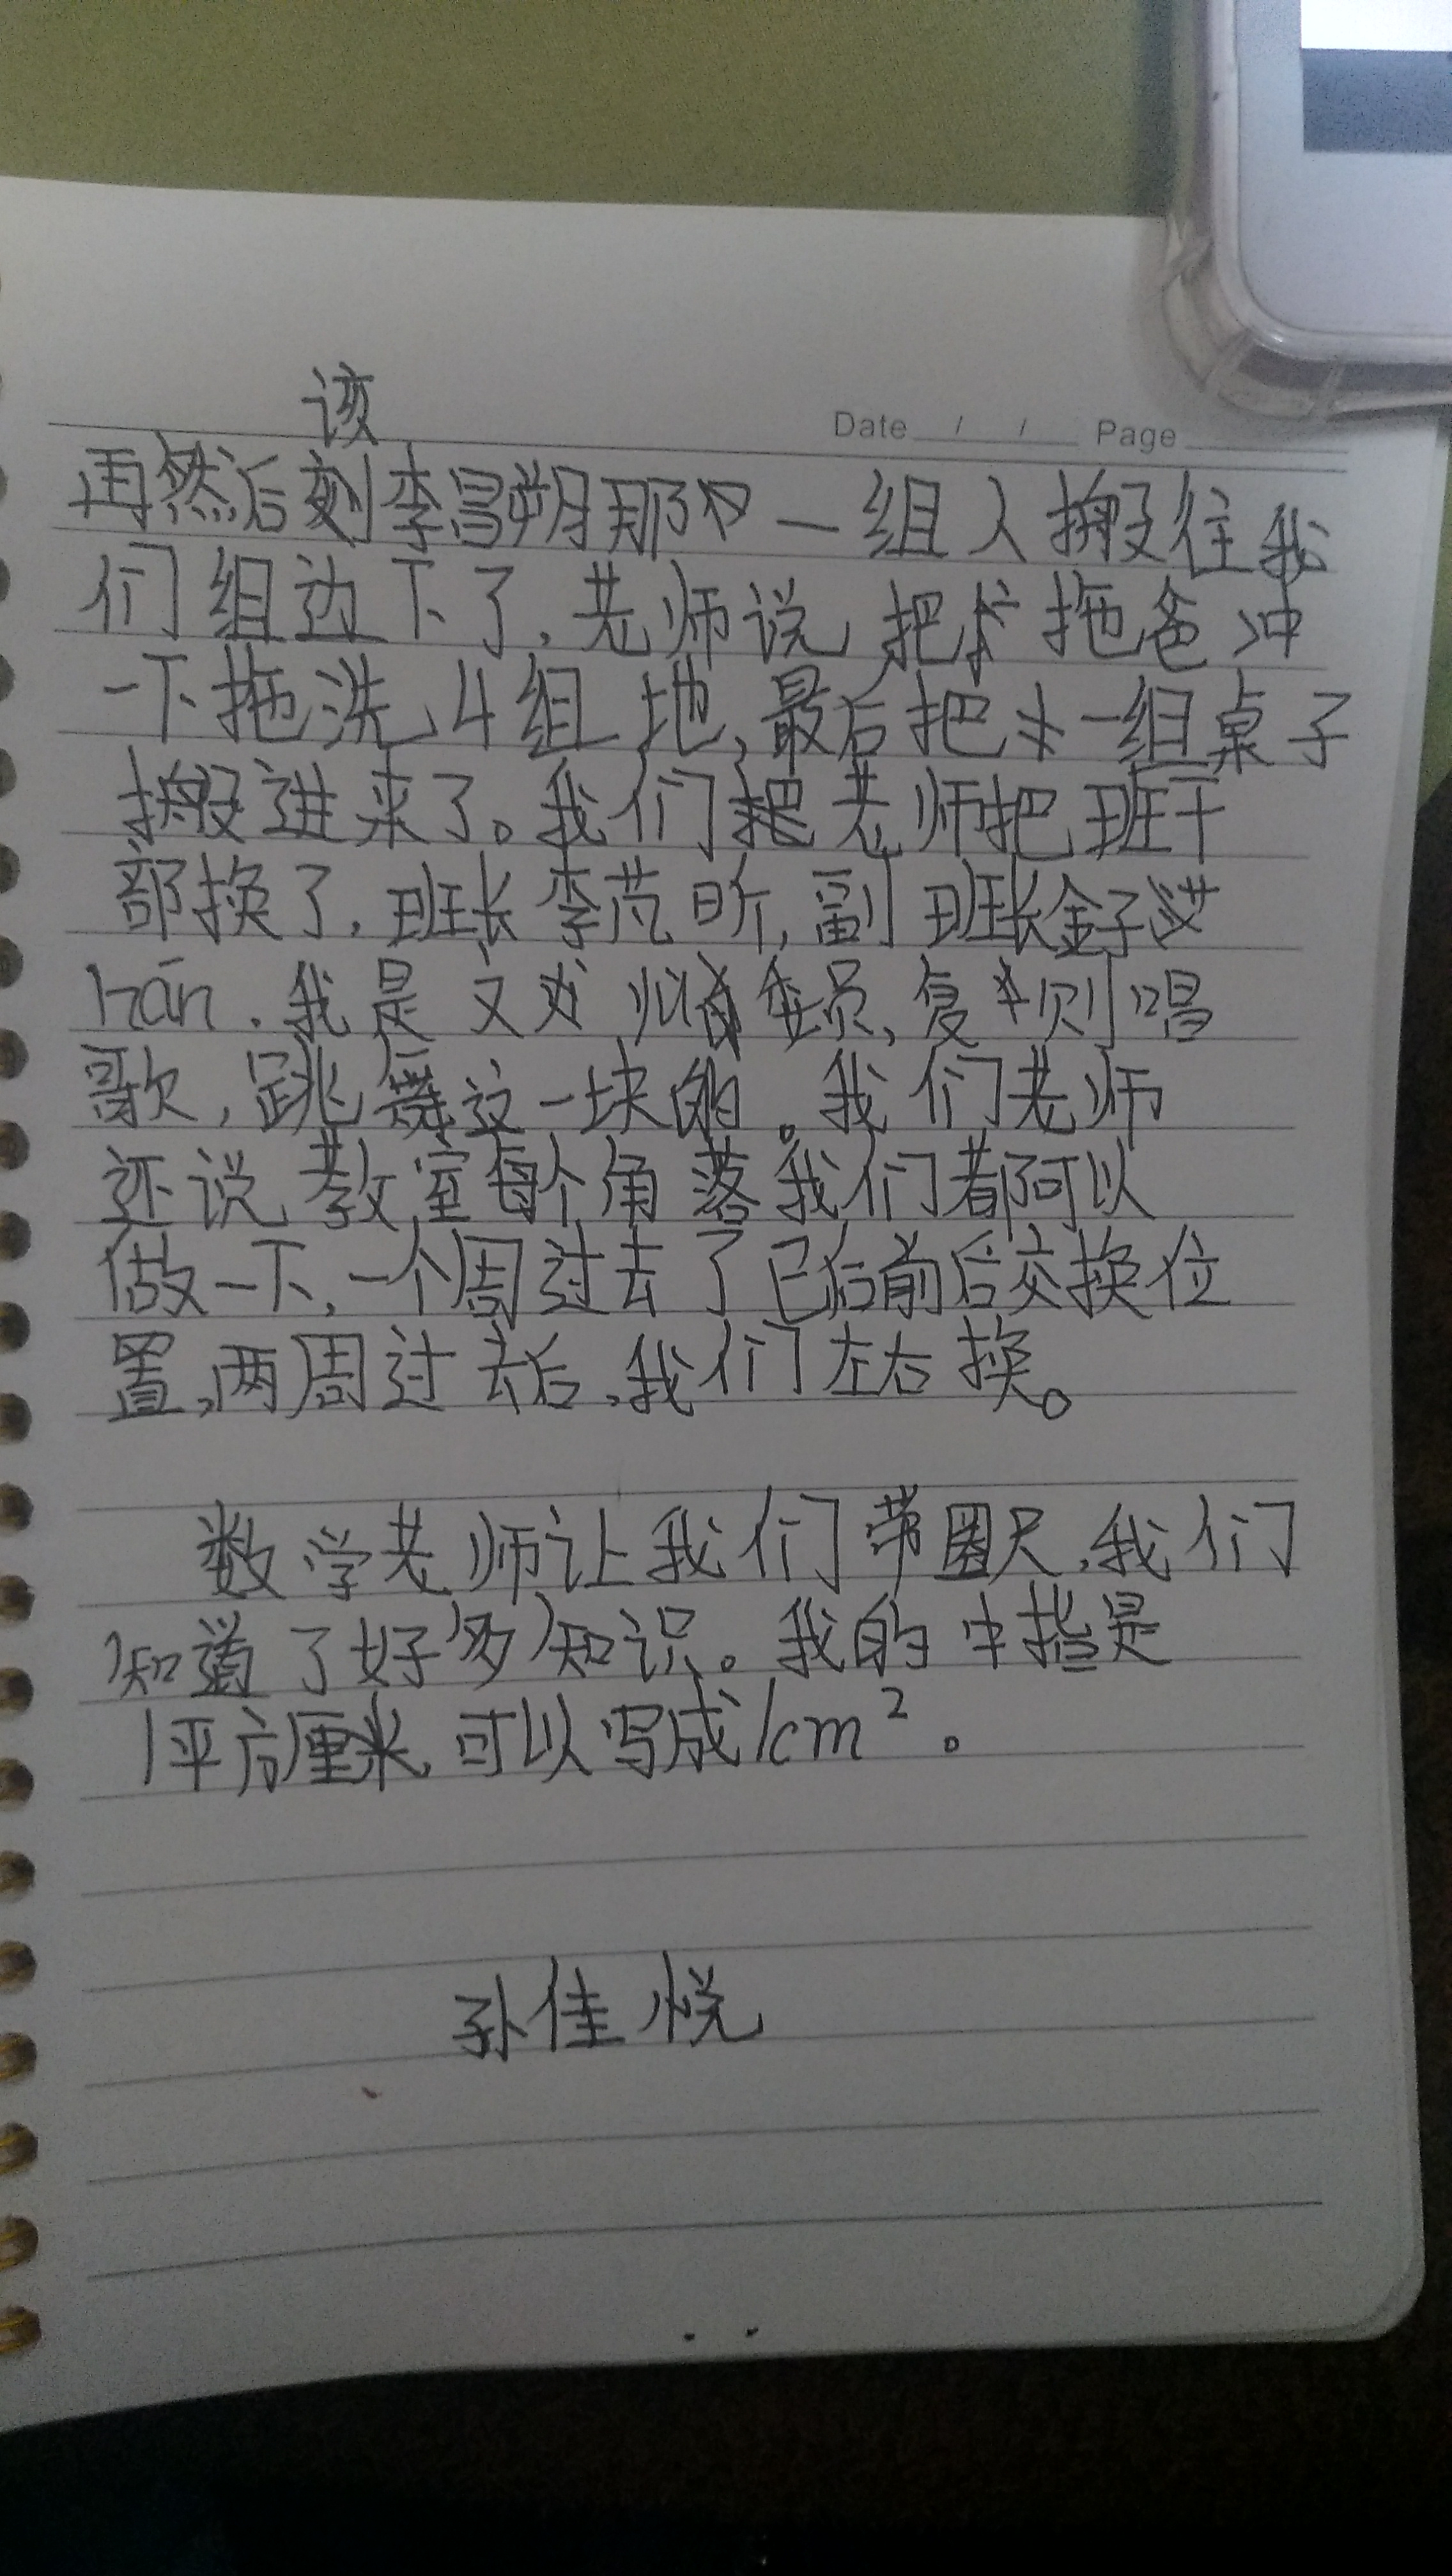 Date / / Page
该
再然后刻李昌朔那一组人搬往我
们组边下了,老师说,把拖爸冲
一下拖洗,4组地,最后把一组桌子
搬进来了。我们老师把班干
部换了,班长李范昕,副班长金子
hān.我是文委员,复则唱
歌,跳舞这一块的。我们老师
还说,教室每个角落我们都可以
做一下,一个周过去了已后前后交换位
置,两周过去后,我们左右换。
数学老师让我们带圈尺,我们
知道了好多知识。我的中指是
1平方厘米,可以写成1cm²。
孙佳悦